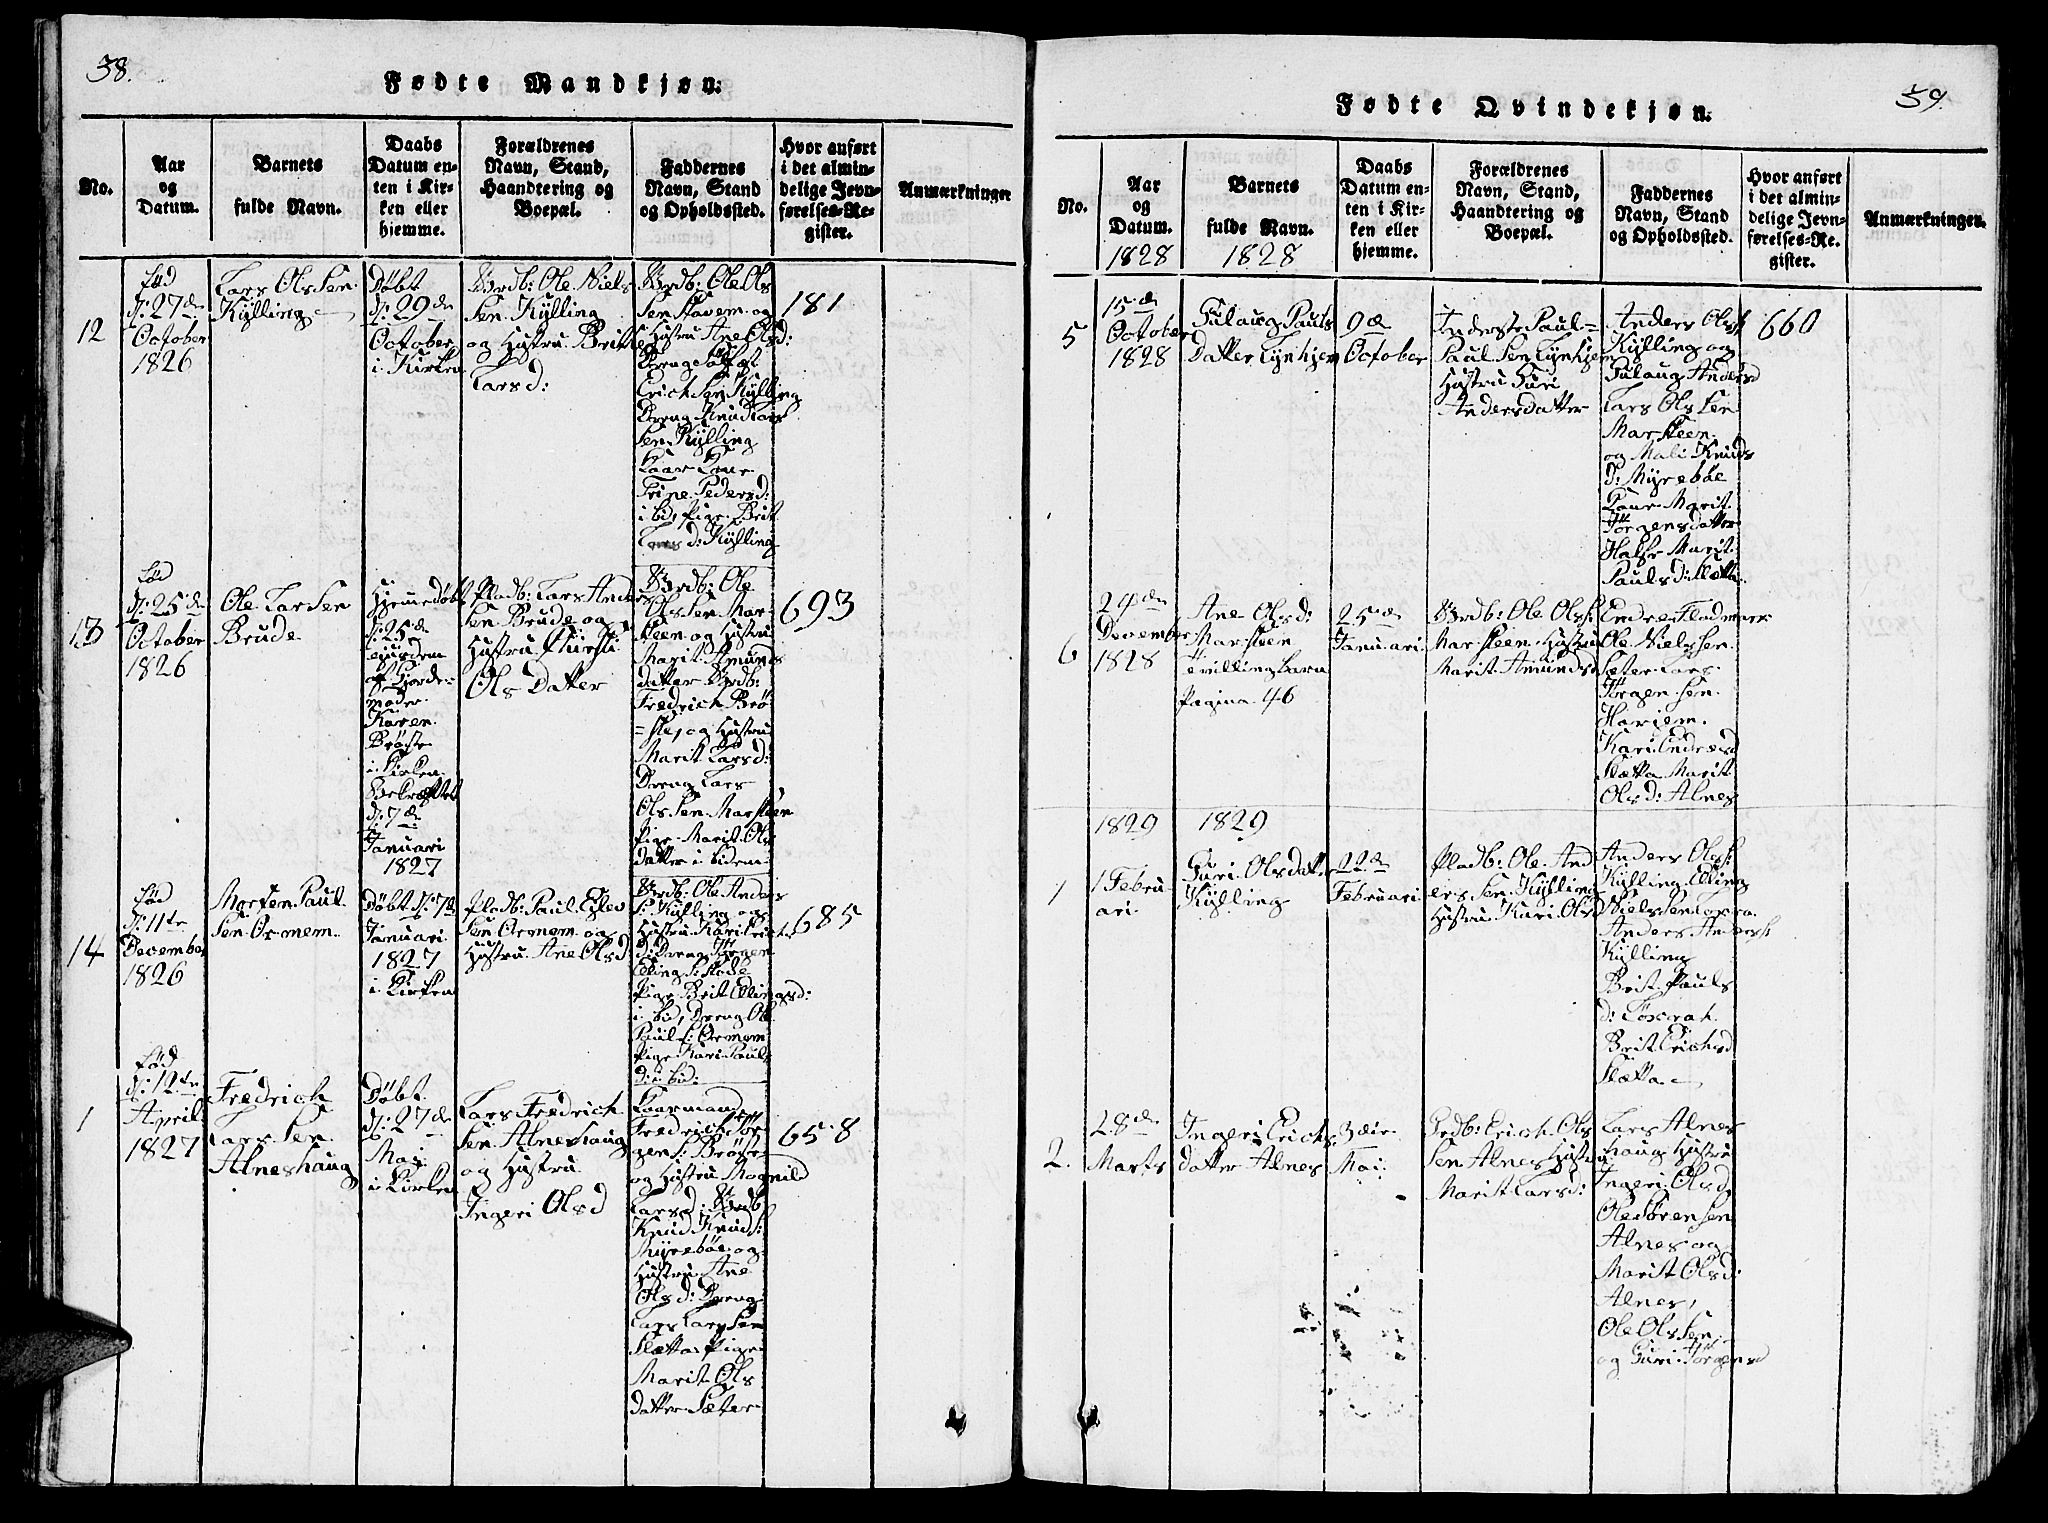 38.
Fødte Mandkjøn.
No.
Aar
og
Datum.
Barnets
fulde Navn.
Daabs
Datum en-
ten i Kir-
ken eller
hjemme.
Forældrenes
Navn, Stand,
Haandtering og
Boepæl.
Faddernes
Navn, Stand
og Opholdssted.
Hvor anført
i det almin-
delige Jevn-
førelses-Re-
gister.
Anmærkninger
12
fød
d: 27de
October
1826
Lars Ols Sen
Kÿlling
Døbt
d: 29de
October
i Kirken
Brdb: Ole Niels
Sen Kÿlling
og Hustru Britte
Lars d:
Brdb: Ole Ols
Sen Stavem og
Hustru Ane Olsd:
Erich Sen Kÿlling
Dreng Knud Lars
Sen Kÿlling
Trine Peders d:
i bid, Pige Brit
Lars d: Kÿlling
181
13
fød
d: 25de
October
1826
Ole Lar Sen
Brude
Hjemmedøbt
d: 25de
ejusdem
af Gjorde-
moder
Karen
Brøste
i Kirken
Bekræftet
d: 7de
Januari
1827
Pladb: Lars Anders
Sen Brude og
Hustru
Ols Datter
Brdb: Ole
Ols Sen Mar-
steen og Hustru
Marit Amunds
datter Brdb:
Fredrich Brø
=ste, og Hustru
Marit Lars d:
Dreng Lars
Ols Sen Marsteen
Pige Marit Ols
datter ibidem
693
14
fød
d: 11te
December
1826
Morten Paul
Sen Ormem
Døbt d: 7de
Januari
1827
i Kirken
Pladb: Paul Eslev
Sen Ormem og
Hustru Ane Olsd
Brdb: Ole Anders
S: Kÿlling og
Hustru Kari Erichs
d: Dreng Jørgen
Elling S: Flode
Pige Brit Ellingsd:
i bid, Dreng Ole
Paul S: Ormem
Pige Kari Pauls
d: i bid:
685
1
fød
d: 12te
April
1827
Fredrich
Lars Sen
Alneshaug
Døbt
d: 27de
Mai
i Kirken
Lars Fredrich
Sen Alneshaug
og Hustru
Ingeri Olsd
Kaarmand
Fredrich Jør
gen S: Brøste
og Hustru Magnild
Lars d: Brdb
Knud Knud S:
Myrebøe og
Hustru Ane
Ols d: Dreng
Lars Lars Sen
Slætta Pige
Marit Ols
datter Sæter
658
59.
Fødte Qvindekjøn.
No.
Aar
og
Datum.
1828
Barnets
fulde Navn.
1828
Daabs
Datum en-
ten i Kir-
ken eller
hjemme.
Forældrenes
Navn, Stand,
Haandtering og
Boepæl.
Faddernes
Navn, Stand
og Opholdssted.
Hvor anført
i det almin-
delige Jevn-
førelses-Re-
gister.
Anmærkninger.
5
15de
October
1828
Gulaug Pauls
Datter Tynhjem
9de
October
Inderste Paul
Paul Sen Tynhjem
Hustru Guri
Andersdatter
Anders Ols S:
Kÿlling og
Gulaug Andersd
Lars Ols Sen
Marsteen
og Mali Knuds
d: Myrebøe
Marit
Jørgensdatter
Halse Marit
Paulsd: Slætta
660
6
29de
December
1828
Ane Olsd:
Marsteen
tvillingbarn
Pagina 46
25de
Januari
Brdb: Ole Ols S:
Marsteen Hustru
Marit Amundsd
Endre Fladmark
Ole Niels Sen
Sæter Lars
Jørgen Sen
Horjem
Kari Endresd
Slætta Marit
Olsd: Alnes
1829
1829
1
1 Febru
ari
Guri Olsdatter
Kÿlling
22de
Februari
Pladb: Ole And
ers Sen Kÿlling
Hustru Kari Olsd
Anders Ols S:
Kÿlling Elling
Niels Sen
Anders Anders S:
Kÿlling
Brit Pauls
d:
Brit Erichsd
Slætta
2.
28de
Marts
Ingeri Erichs
datter Alnes
3die
Mai
Brdb: Erich Ols
Sen Alnes Hustru
Marit Lars d:
Lars Alnes
haug Hustru
Ingeri Olsd
Ole Søren Sen
Alnes og
Marit Olsd:
Alnes,
Ole Ols Sen
og Guri Jørgensd